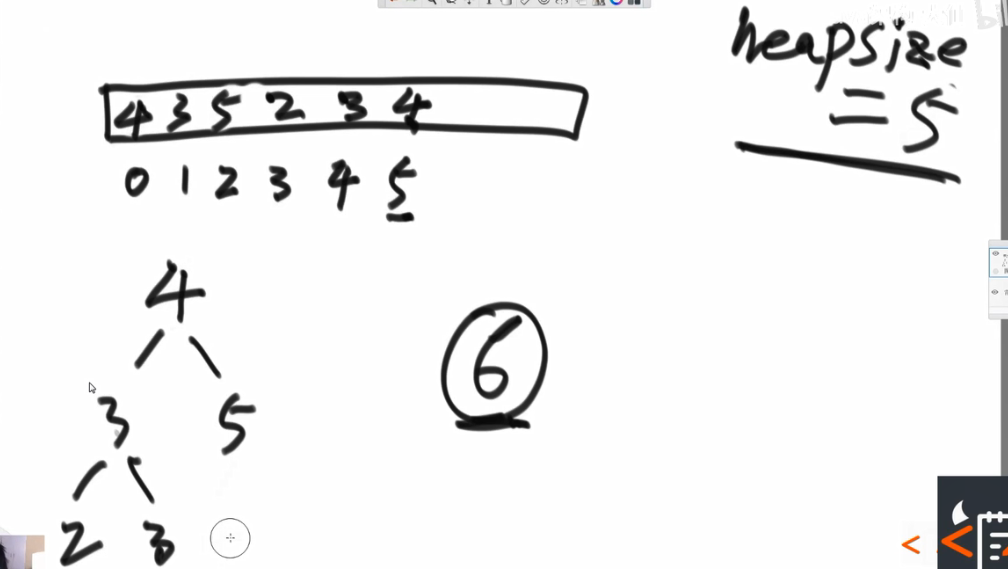 heapsize
= 5
4 3 5 2 3 4
0 1 2 3 4 5
4
3 5
2 3
6